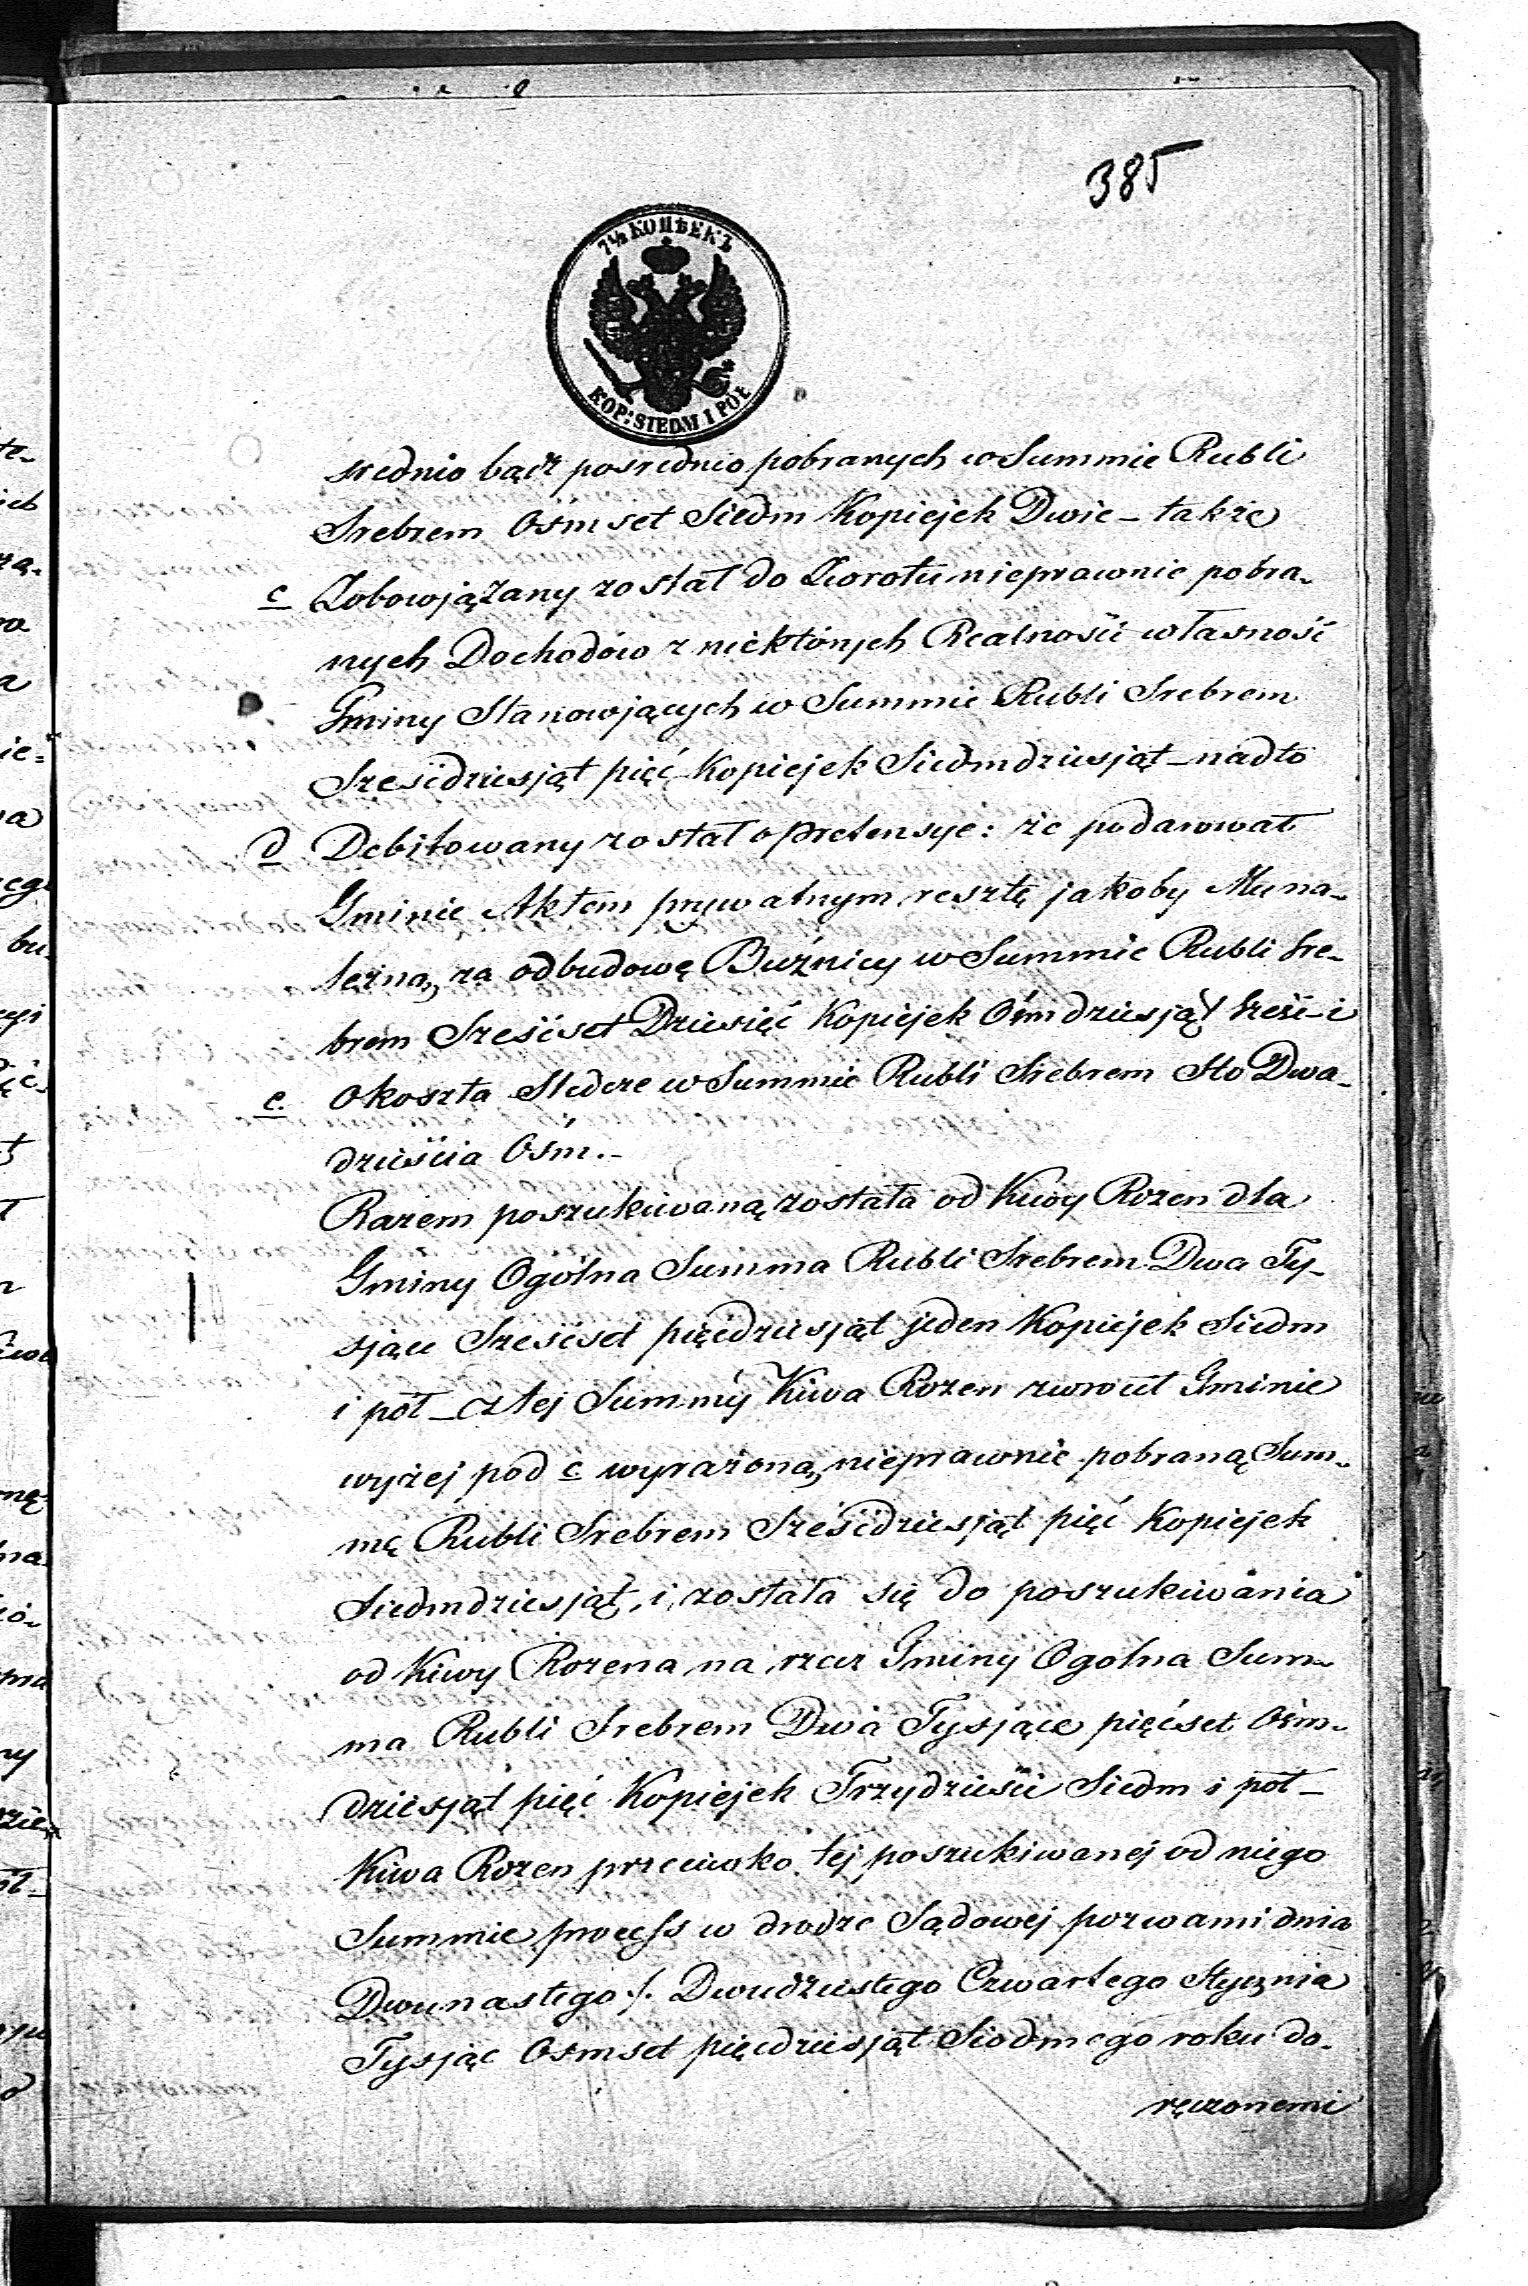 385
7½ КОПѢЕКЪ
KOP: SIEDM I PÓŁ
srednio bądź posrednio pobranych w Summie Rubli
Srebrem Osmset Siedm Kopiejek Dwie – także
c Zobowjązany został do Zwrotu nieprawnie pobra-
nych Dochodów z niektórych Realności własność
Gminy Stanowjących w Summie Rubli Srebrem
Sześcdziesjąt pięć Kopiejek Siedmdziesjąt – nadto
d Debitowany został o pretensye: że podarował
Gminie Aktem prywatnym resztę jakoby Muna-
leżną, za odbudowę Buźnicy w Summie Rubli Sre-
brem Sześćset Dziesięć Kopiejek Ośmdziesjąt Sześć – i
e. o koszta Sledcze w Summie Rubli Srebrem Sto Dwa-
dzieścia Ośm. –
Razem poszukiwaną została od Kiwy Rozen dla
Gminy Ogólna Summa Rubli Srebrem Dwa Ty-
sjące Sześcset pięćdziesjąt jeden Kopiejek Siedm
i pół – cztej Summy Kiwa Rozen zwrócił Gminie
wyżej pod c wyrażoną, nieprawnie pobraną Sum-
mę Rubli Srebrem Sześćdziesjąt pięć Kopiejek
Siedmdziesjąt, i, została się do poszukiwania
od Kiwy Rozena na rzecz Gminy Ogolna Sum-
ma Rubli Srebrem Dwa Tysjące pięćset Ośm-
dziesjąt pięć Kopiejek Trzydzieści Siedm i poł –
Kiwa Rozen przeciwko tej poszukiwanej od niego
Summie process w drodze Sądowej pozwami dnia
Dwunastego /. Dwudziestego Czwartego Stycznia
Tysjąc Osmset pięcdziesjąt Siodmego roku do-
ręczonemi